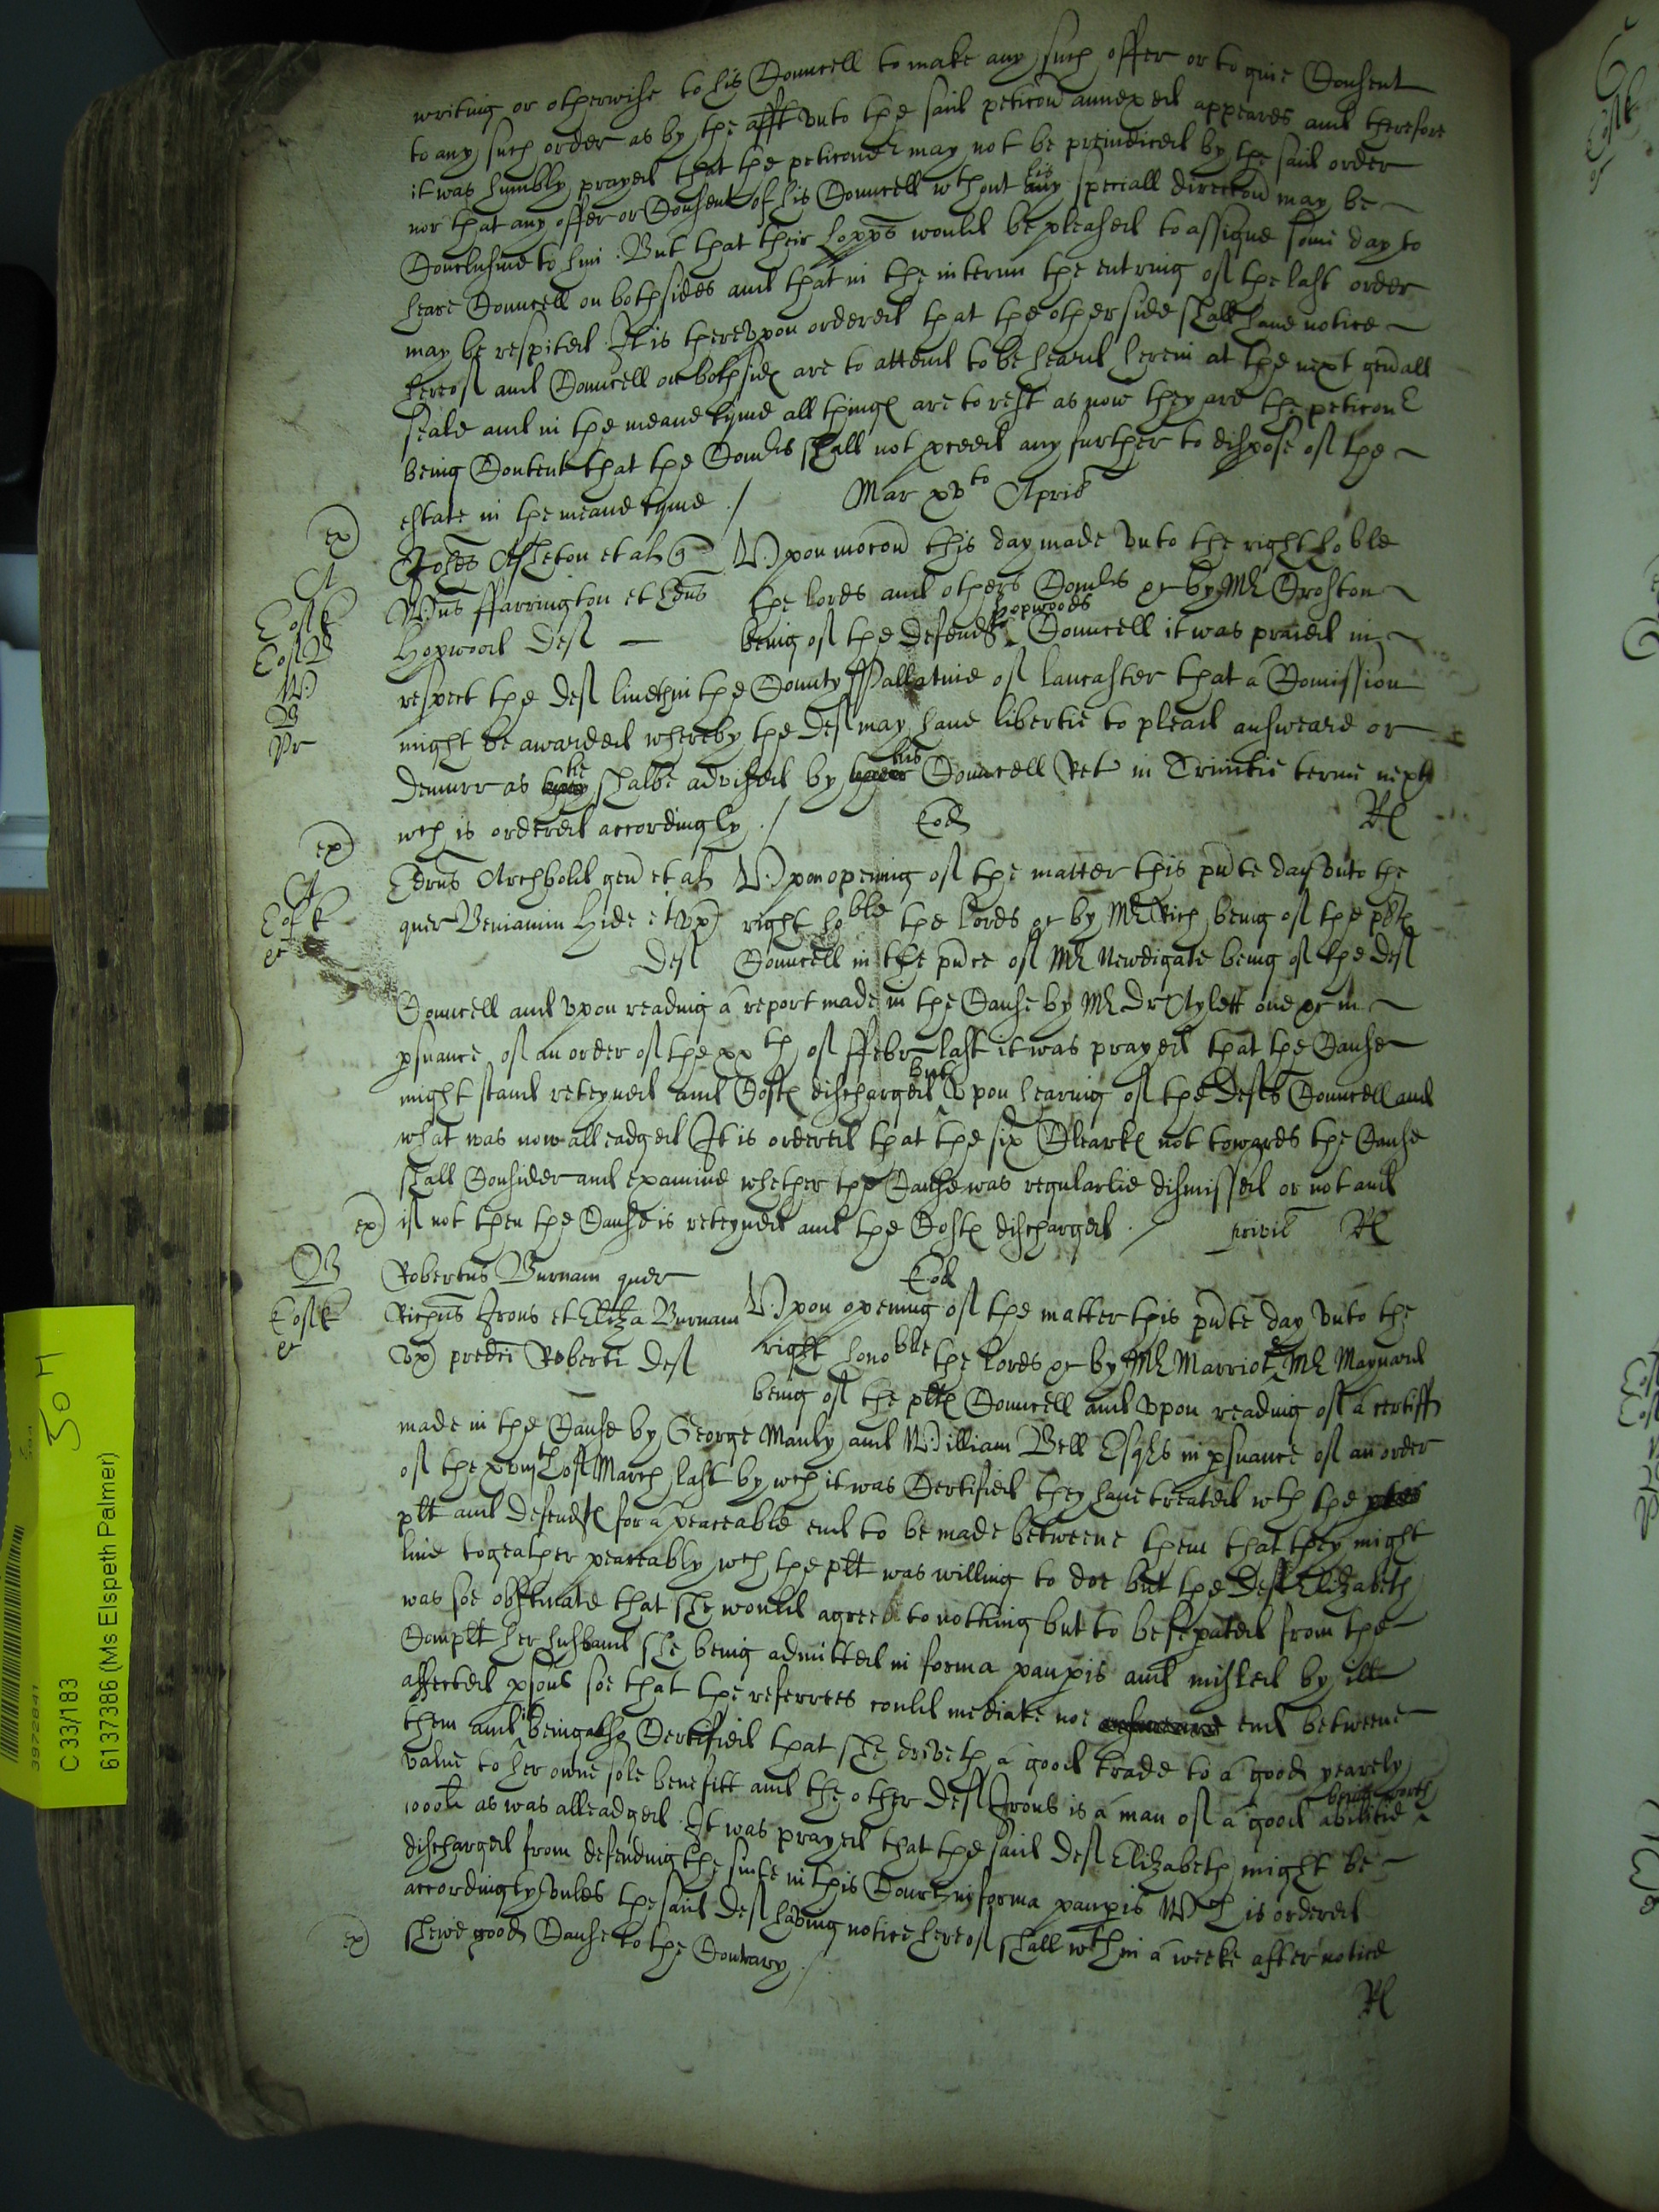 writing or otherwise to his Councell to make any such offer or to give Consent
to any such order as by the afft unto the said peticon annexed appeares and therefore
it was humbly prayed that the peticoner may not be preiudiced by the said order
nor that any offer or Consent of his Councell wthout his any speciall direccon may be
Conclusive to him. But that their Lopps would be pleased to assigne some day to
heare Councell on both sides and that in the interim the entring of the last order
may be respited It is thereupon ordered that the other side shall have notice
hereof and Councell on both sides are to attend to be heard herein at the next genall
seale and in the meane tyme all things are to rest as now they are the peticonr
being Content that the Comrs shall not pceed any further to dispose of the
estate in the meane tyme /
Mar xvto Apris
Johes Assheton et al q
Wms ffarrington et Edrus
Hopwood Def
Upon mocon this day made unto the right hoble
the Lords and others Comrs &c by Mr Croston
being of the defendts Hopwoods Councell it was praied in
respect the def liveth in the County Pallatine of Lancaster that a Comission
might be awarded whereby the def may have libertie to plead answeare or
demurr as he shalbe advised by his Councell Ret in Trinitie terme next
wch is ordered accordingly /
Rl
Eod
Edrus Archbold gen et al
quer Beniamin Hide et ux
Def
Upon opening of the matter this pnte day unto the
right hoble the Lords &c by Mr Rich being of the plts
Councell in the pnce of Mr Newdigate being of the def
Councell and upon reading a report made in the Cause by Mr Dr Aylett one &c in
psuance of an order of the xxth of ffebr last it was prayed that the Cause
might stand reteyned and Costs discharged but Upon hearing of the defts Councell and
what was now alleadged It is ordered that the six Clearks not towards the Cause
shall Consider and examine whether the Cause was regularlie dismissed or not and
if not then the Cause is reteyned and the Costs discharged. /
Rl
Eod
Robertus Burnam quer
Richus Irons et Eliza Burnam
ux predci Roberti Def
Upon opening of the matter this pnte day unto the
right honoble the Lords &c by Mr Marriot & Mr Maynard
being of the plts Councell and upon reading of a certiff
made in the Cause by George Manby and William Bell Esqrs in psuance of an order
of the xviijth of March last by wch it was Certified they have treated wth the
plt and defendts for a peaceable end to be made betweene them that they might
live togeather peaceably wch the plt was willing to doe but the Def Elizabeth
was soe obstinate that she would agree to nothing but to be sepated from the
Complt her husband she being admitted in forma paupis and misled by ill
affected psons soe that the referrees could mediate noe end betweene
them and it being also Certified that she driveth a good trade to a good yearely
value to her owne sole benefitt and the other def Irons is a man of a good abilitie being worth
1000li as was alleadged. It was prayed that the said Def Elizabeth might be
discharged from defending the suite in this Court in forma paupis Wch is ordered
accordingly unles the said Def having notice hereof shall wthin a weeke after notice
shewe good Cause to the Contrary. /
Rl
C 33/183
61377386 (Ms Elspeth Palmer)
3972841